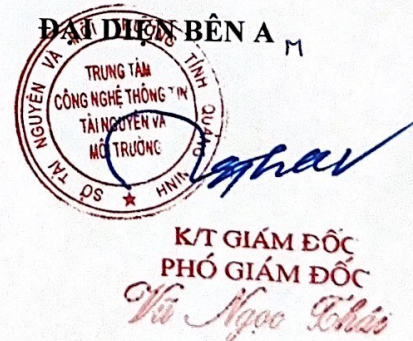 ĐẠI DIỆN BÊN A
M
SỞ TÀI NGUYÊN VÀ MÔI TRƯỜNG TỈNH QUẢNG NINH
TRUNG TÂM
CÔNG NGHỆ THÔNG TIN
TÀI NGUYÊN VÀ
MÔI TRƯỜNG
K/T GIÁM ĐỐC
PHÓ GIÁM ĐỐC
Vũ Ngọc Thái